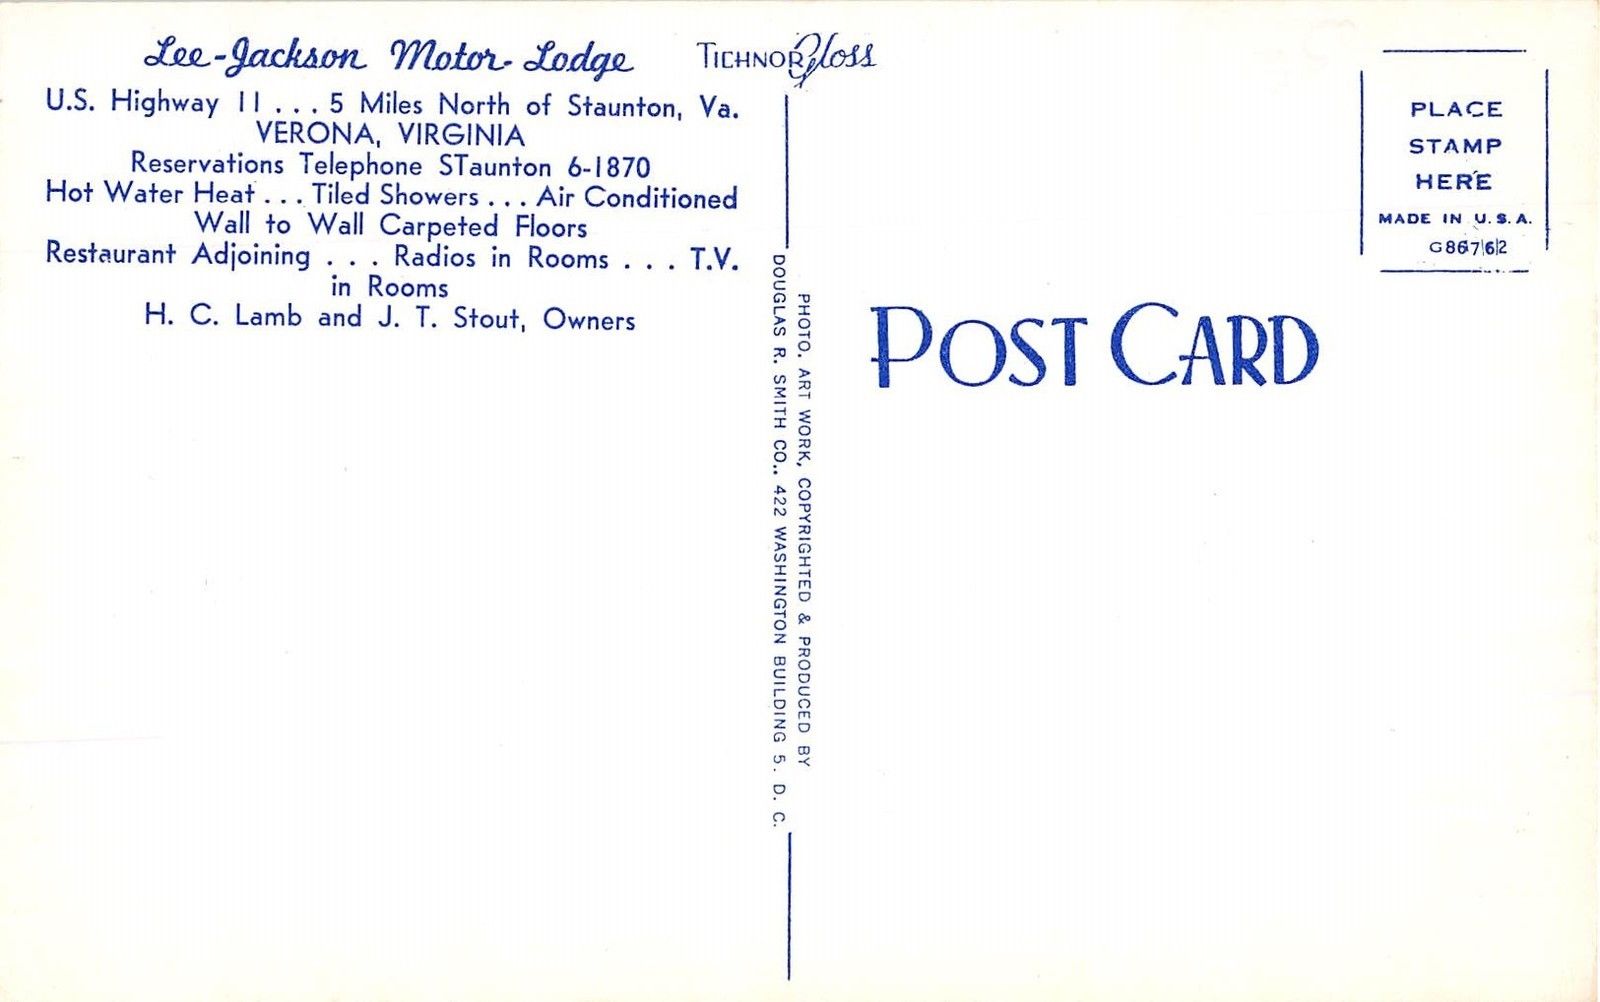 Lee-Jackson Motor Lodge
U.S. Highway 11 . . . 5 Miles North of Staunton, Va.
VERONA, VIRGINIA
Reservations Telephone STaunton 6-1870
Hot Water Heat . . . Tiled Showers . . . Air Conditioned
Wall to Wall Carpeted Floors
Restaurant Adjoining . . . Radios in Rooms . . . T.V.
in Rooms
H. C. Lamb and J. T. Stout, Owners
TICHNOR Gloss
PHOTO. ART WORK, COPYRIGHTED & PRODUCED BY
DOUGLAS R. SMITH CO., 422 WASHINGTON BUILDING 5. D. C.
POST CARD
PLACE
STAMP
HERE
MADE IN U.S.A.
G86762